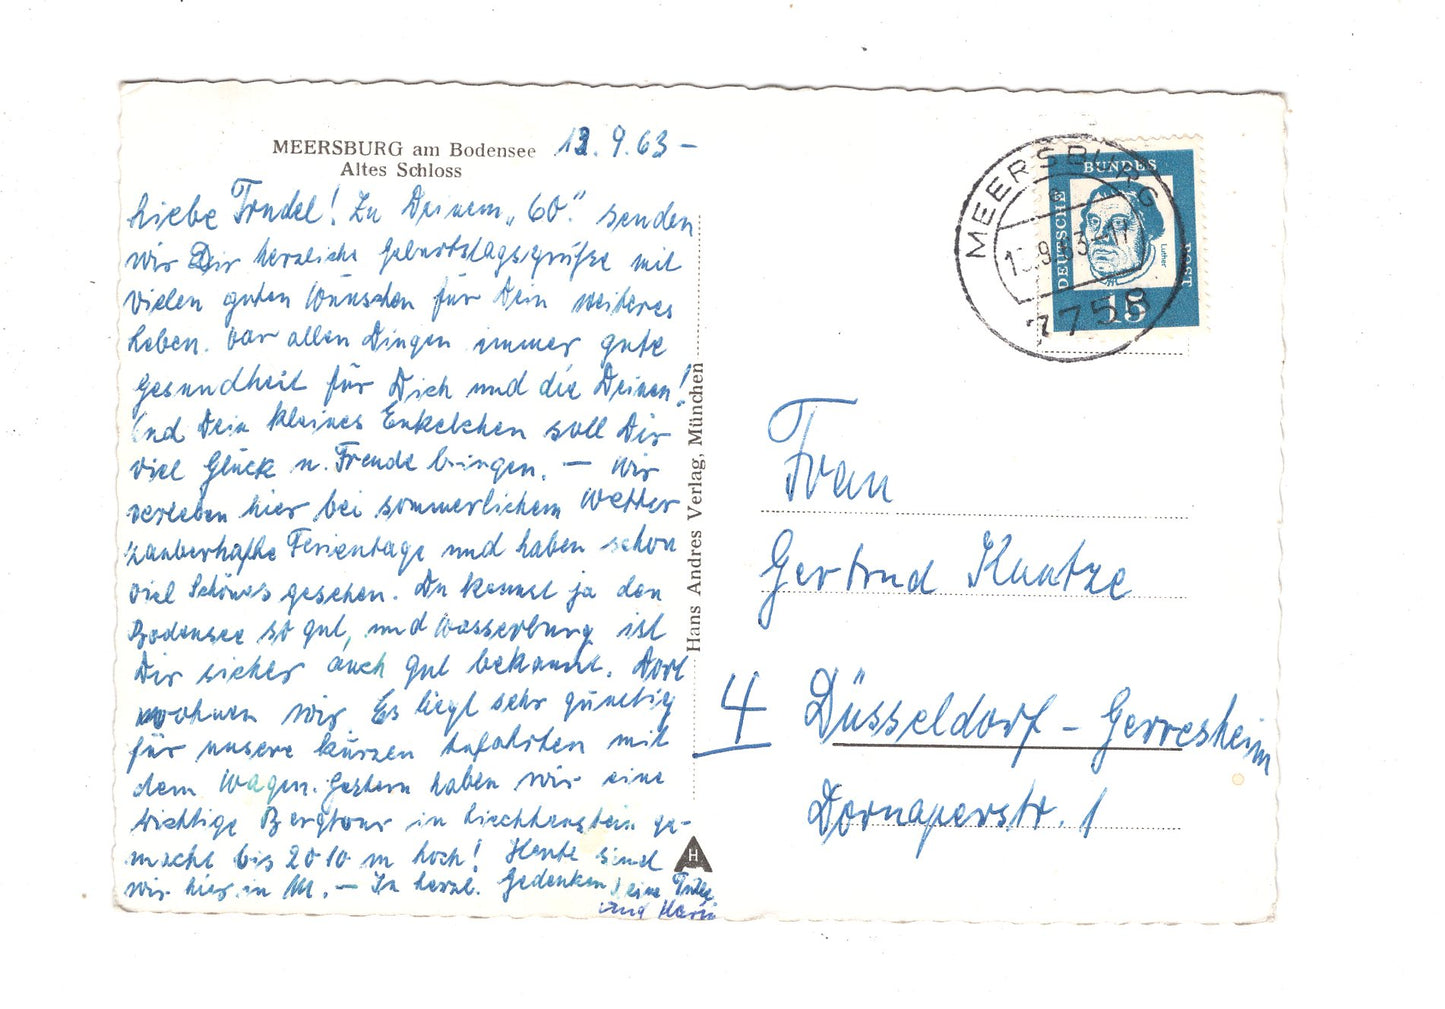 MEERSBURG am Bodensee
Altes Schloss
12.9.63 –
Liebe Trudel! Zu Deinem „60." senden
wir Dir herzliche Geburtstagsgrüße mit
vielen guten Wünschen für Dein weiteres
Leben. Vor allen Dingen immer gute
Gesundheit für Dich und die Deinen!
Und Dein kleines Enkelchen soll Dir
viel Glück u. Freude bringen. — Wir
verleben hier bei sommerlichem Wetter
zauberhafte Ferientage und haben schon
viel Schönes gesehen. Du kennst ja den
Bodensee so gut, und Wasserburg ist
Dir sicher auch gut bekannt. Dort
wohnen wir. Es liegt sehr günstig
für unsere kurzen Anfahrten mit
dem Wagen. Gestern haben wir eine
richtige Bergtour in Liechtenstein ge-
macht bis 2010 m hoch! Heute sind
wir hier in M. — In herzl. Gedenken Deine
und
Hans Andres Verlag, München
H
MEERSBURG
e
.9.63-
7758
DEUTSCHE
BUNDES
POST
Luther
15
Frau
Gertrud Kuntze
4 Düsseldorf - Gerresheim
Dornaperstr. 1